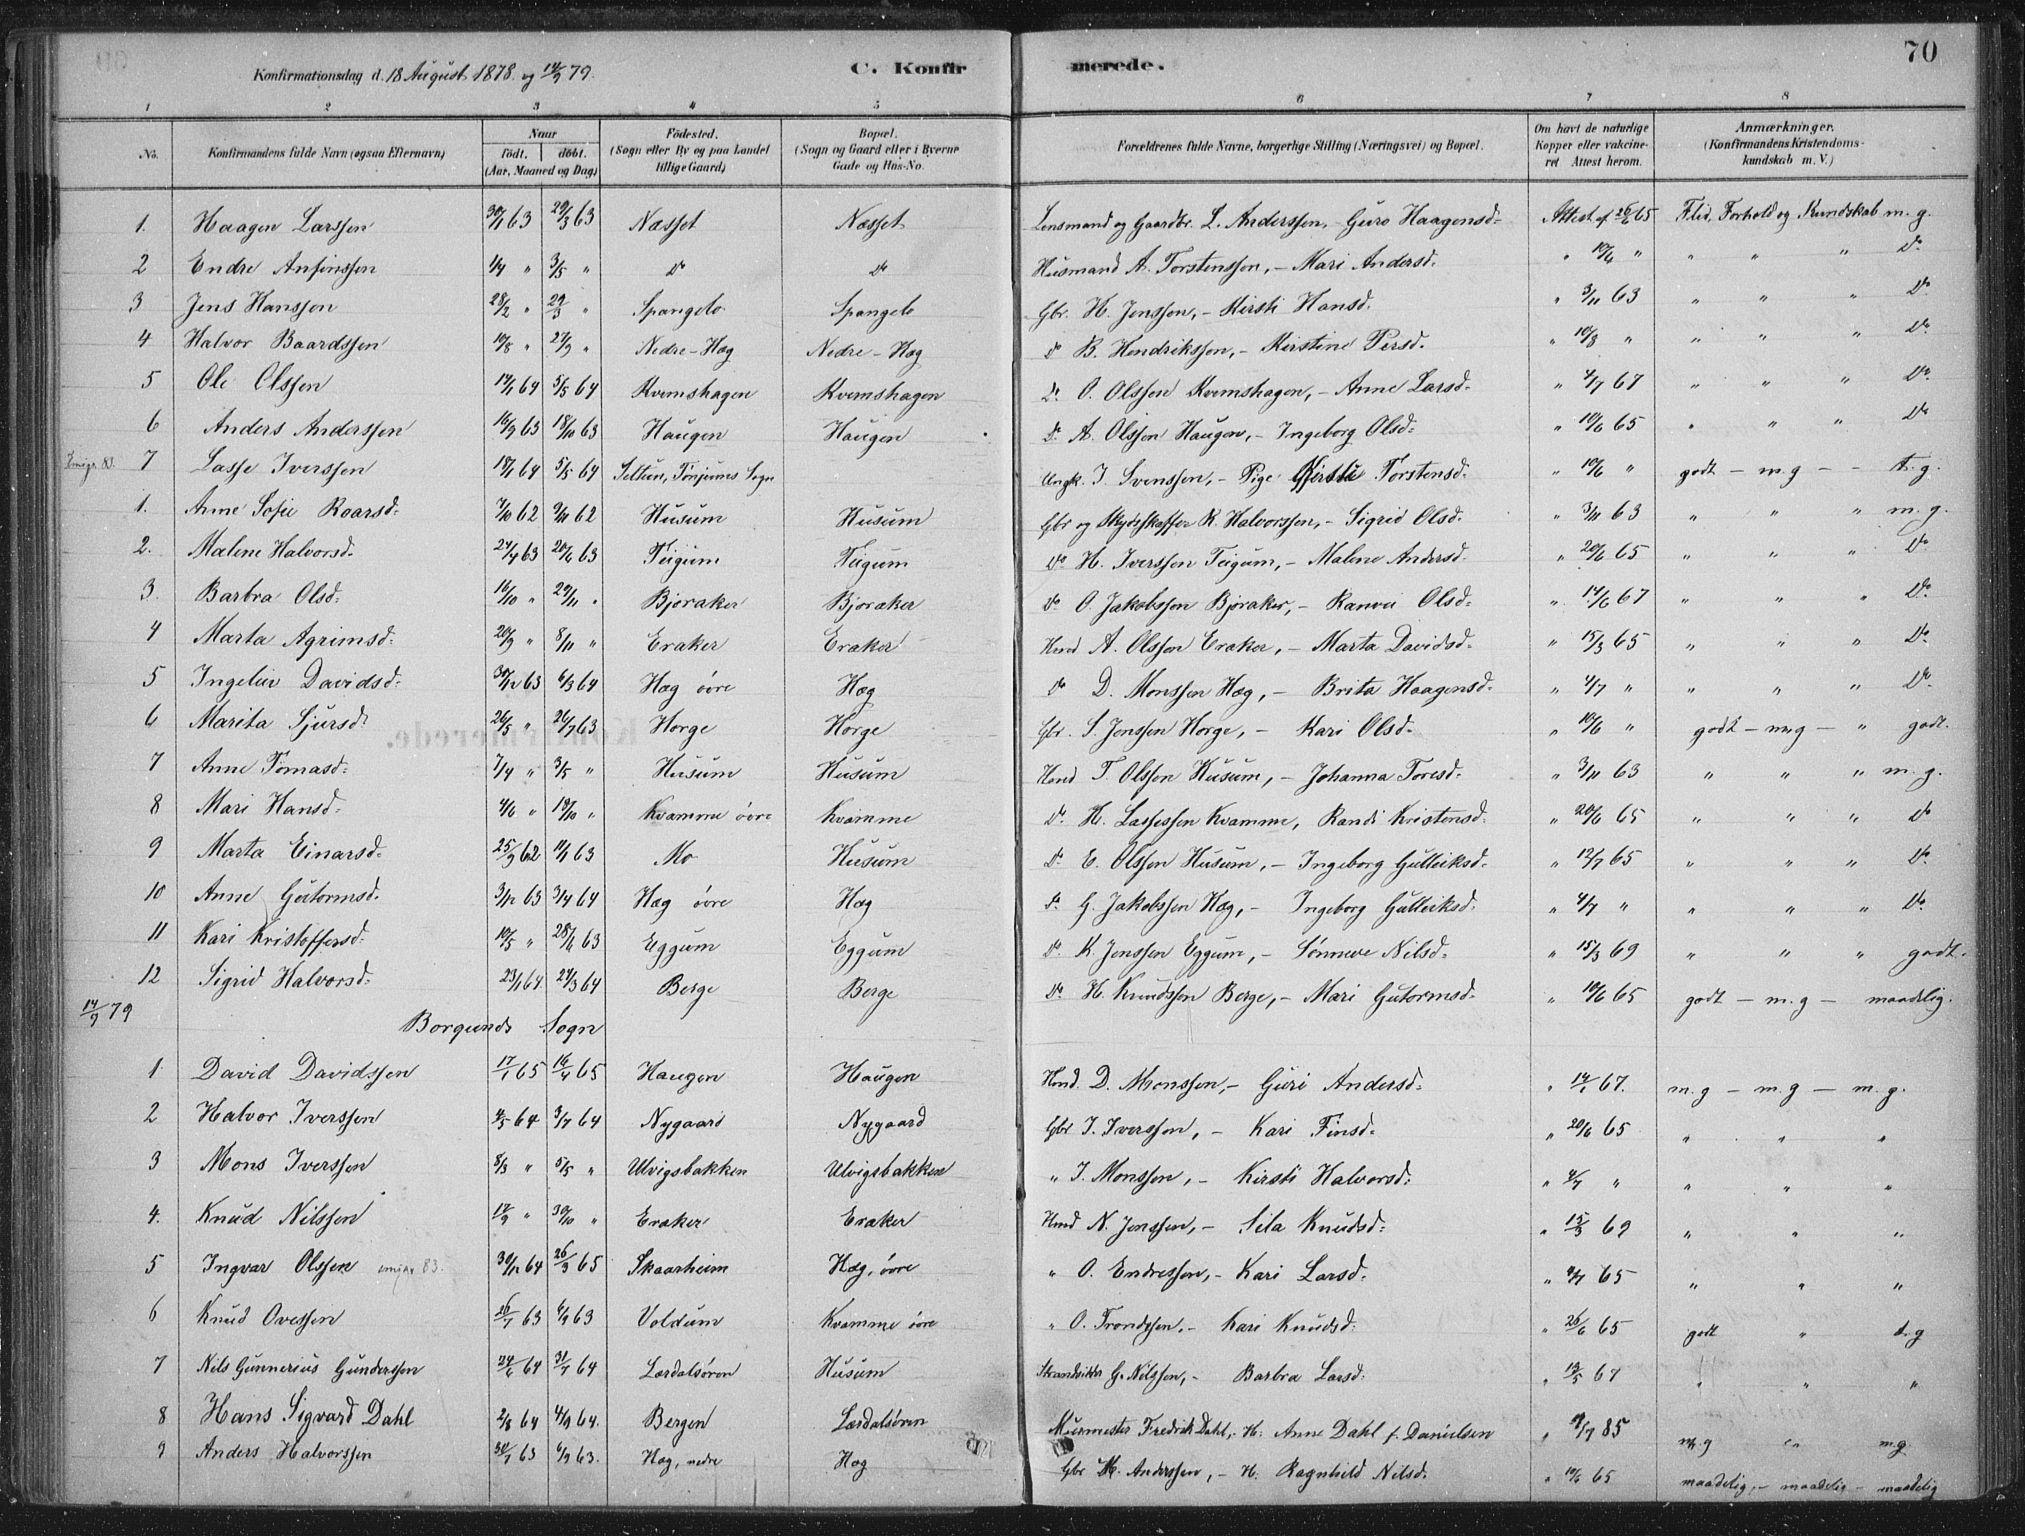 70
Konfirmationsdag d. 18 August 1878 og 14/9 79.
C. Konfirmerede.
1 2 3 4 5 6 7 8
No. Konfirmandens fulde Navn (ogsaa Efternavn) Naar födt. döbt. (Aar, Maaned og Dag) Födested. (Sogn eller By og paa Landet tillige Gaard) Bopæl. (Sogn og Gaard eller i Byerne Gade og Hus-No. Forældrenes fulde Navne, borgerlige Stilling (Næringsvei) og Bopæl. Om havt de naturlige Kopper eller vakcineret Attest herom. Anmærkninger. (Konfirmandens Kristendomskundskab m. V.)
1. Haagen Larssen 30/1 63 29/3 63 Næsset Næsset Lensmand og Gaardbr. L. Anderssen, - Guro Haagensd. Attest af 26/6 65 Flid, Forhold og Kundskab m. g.
2 Endre Anfinssen 1/4 " 3/5 " Do Do Husmand A. Torstenssen, - Mari Andersd. " 10/6 " " " " Do
3 Jens Hanssen 28/2 " 29/3 " Spangelo Spangelo Gbr. H. Jenssen, - Kirsti Hansd. " 3/11 63 " " " Do
4 Halvor Baardssen 10/8 " 27/9 " Nedre-Hæg Nedre-Hæg Do B. Hendrikssen, - Kirstine Persd. " 10/8 " " " " Do
5 Ole Olssen 14/1 64 5/5 64 Kvemshagen Kvemshagen Do O. Olssen Kvemshagen, - Anne Larsd. " 4/7 67 " " " Do
6 Anders Anderssen 16/9 63 18/10 63 Haugen Haugen Do A. Olssen Haugen, - Ingeborg Olsd. " 10/6 65 " " " Do
Emigr. 83. 7 Lasse Iverssen 18/1 64 5/5 64 Seltun, Tønjums Sogn Ungk. I. Svenssen, - Pige Kjersti Torstensd. " 10/6 " godt - m.g - - t.g.
1. Anne Sofie Roarsd. 7/10 62 9/11 62 Husum Husum Gbr og Skydsskaffer R. Halvorssen, - Sigrid Olsd. " 3/11 63 " " " m. g.
2. Malene Halvorsd. 24/4 63 20/6 63 Teigum Teigum Do H. Iverssen Teigum, - Malene Andersd. " 20/6 65 " " " Do
3. Barbra Olsd. 16/10 " 29/11 " Bjoraker Bjoraker Do O. Jakobssen Bjøraker, - Ranvei Olsd. " 14/6 67 " " " Do
4 Marta Agrimsd. 20/9 " 8/11 " Eraker Eraker Hmd A. Olssen Eraker, - Marta Davidsd. " 15/3 65 " " " Do
5 Ingeliv Davidsd. 30/12 63 6/3 64 Hæg öóre Hæg Do D. Monssen Hæg, - Brita Haagensd. " 4/7 " " " " Do
6 Marita Sjursd. 26/5 " 26/7 63 Horge Horge Gbr. S. Jenssen Horge, - Kari Olsd. " 10/6 " godt - m.g - " godt.
7 Anne Tomasd. 7/4 " 3/5 " Husum Husum Hmd T. Olssen Husum, - Johanna Toresd. " 3/11 63 " " " m. g.
8 Mari Hansd. 4/6 " 18/10 " Kvamme övre Kvamme Do H. Lassessen Kvamme, Randi Kristensd. " 20/6 65 " " " Do
9 Marta Einarsd. 25/9 62 11/1 63 Mo Husum Do E. Olssen Husum, - Ingeborg Gulleiksd. " 12/7 65 " " " Do
10 Anne Gutormsd. 3/12 63 3/4 64 Hæg övre Hæg Do G. Jakobssen Hæg, - Ingeborg Gulleiksd. " 4/7 " " " " Do
11 Kari Kristoffersd. 10/5 " 28/6 63 Eggum Eggum Do K. Jenssen Eggum, - Sønneve Nilsd. " 15/3 69 " " " godt.
12 Sigrid Halvorsd. 23/1 64 27/3 64 Berge Berge Do H. Knudssen Berge, - Mari Gutormsd. " 10/6 65 godt - m.g - maadelig.
14/9 79 Borgunds Sogn
1 David Davidssen 17/1 65 16/4 65 Haugen Haugen Hmd. D. Monssen, - Guri Andersd. " 14/6 67. m.g - m.g - m.g.
2 Halvor Iverssen 4/5 64 3/7 64 Nygaard Nygaard Gbr I. Iverssen, - Kari Finsd. " 20/6 65 " " "
3 Mons Iverssen 8/3 " 5/5 " Ulvigsbakken Ulvigsbakken " I. Monssen, - Kirsti Halvorsd. " 4/7 " " " "
4. Knud Nilssen 17/9 " 30/10 " Eraker Eraker Hmd N. Jenssen, - Sila Knudsd. " 15/3 69 " " "
5 Ingvar Olssen emigr. 83. 30/12 64 26/3 65 Skaarheim Hæg, övre " O. Endressen, - Kari Larsd. " 4/7 65 " " "
6 Knud Ovessen 26/7 63 6/9 63 Voldum Kvamme övre " O. Trondssen, - Kari Knudsd. " 26/6 65 godt " t.g
7 Nils Gunnerius Gunderssen 24/6 64 31/7 64 Lærdalsören Husum Strandsidder G. Nilssen, - Barbra Larsd. " 19/5 67 " " "
8 Hans Sigvard Dahl 2/8 64 4/9 64. Bergen Lærdalsören Murmester Fredrik Dahl, H. Anne Dahl f. Danielsen " /7 85 m.g " m.g
9 Anders Halvorssen 30/7 63 6/9 63. Hæg, nedre Hæg Gbr H. Anderssen, - H. Ragnhild Nilsd. " 10/6 65 maadelig, - maadelig - maadelig